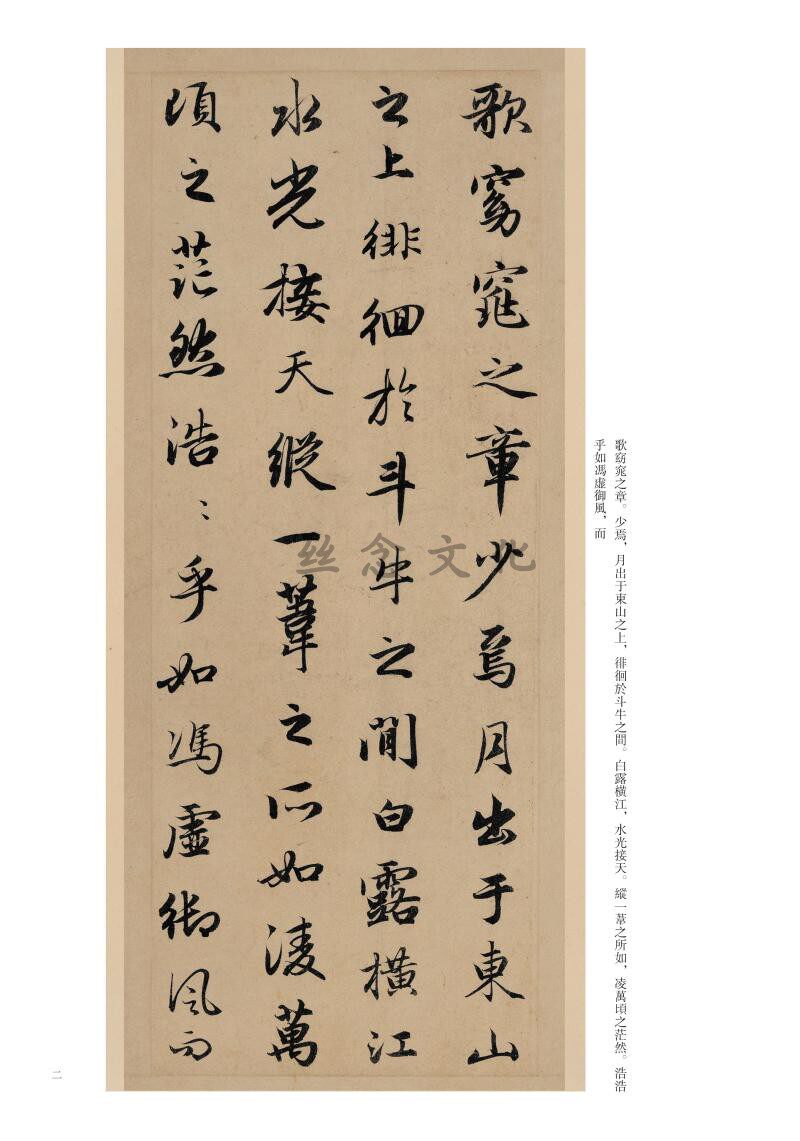 歌窈窕之章少焉月出于東山
之上徘徊於斗牛之間白露横江
水光接天縱一葦之所如淩萬
頃之茫然浩〻乎如馮虛御風而
絲念文化
歌窈窕之章。少焉，月出于東山之上，徘徊於斗牛之間。白露横江，水光接天。縱一葦之所如，凌萬頃之茫然。浩浩
乎如馮虛御風，而
二